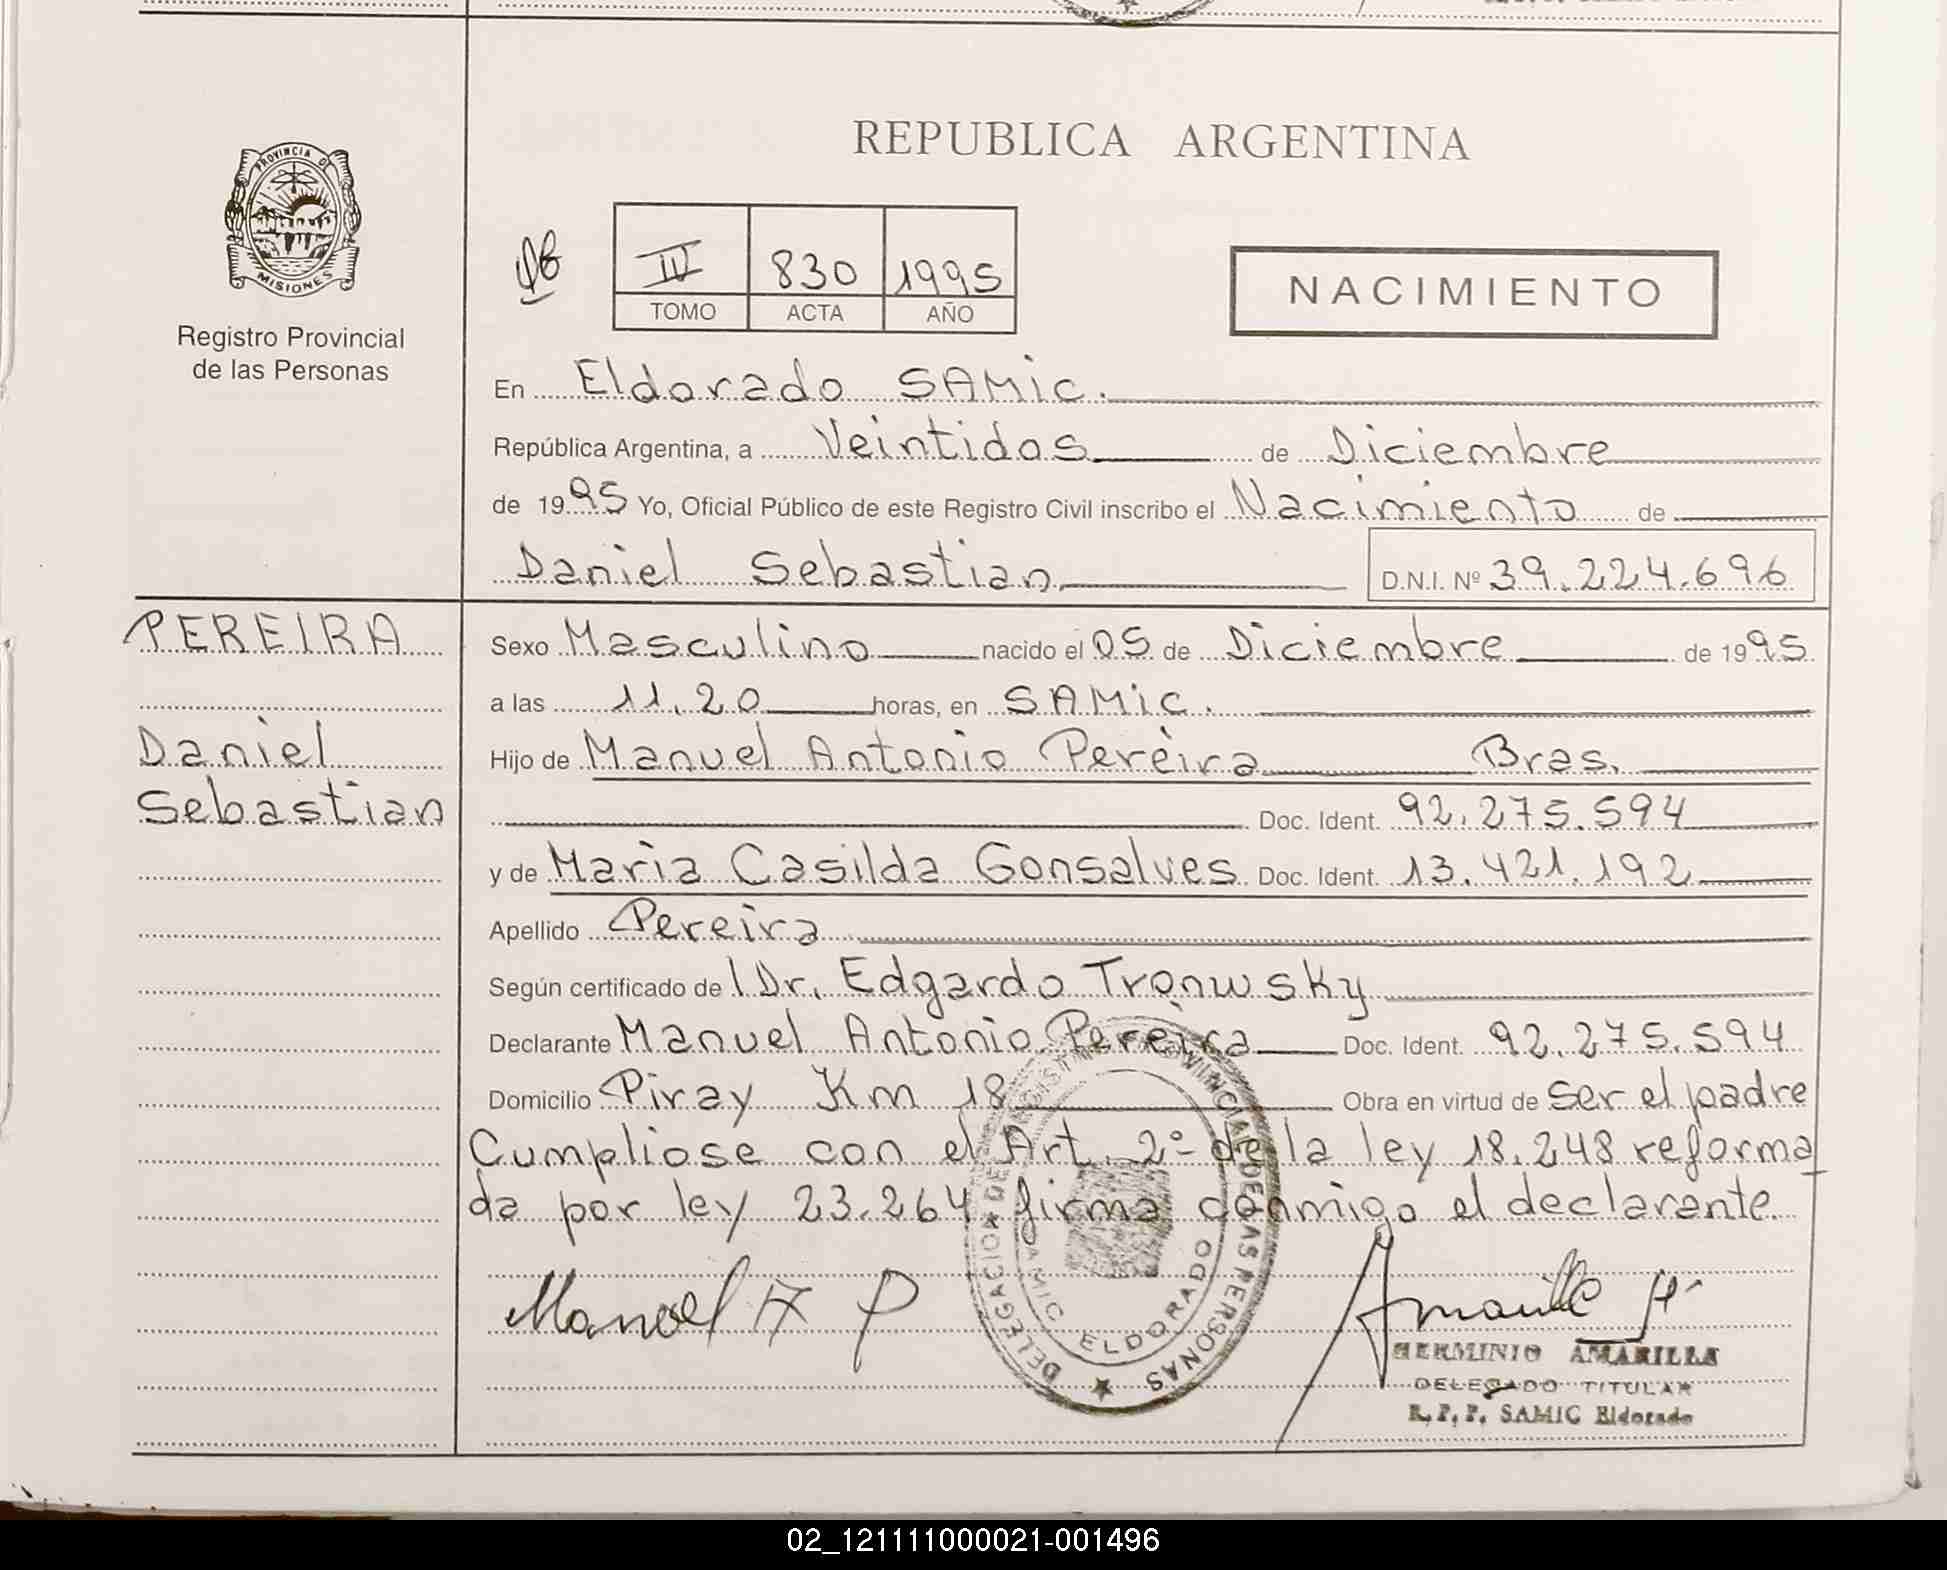 REPUBLICA ARGENTINA
PROVINCIA DE
MISIONES
Registro Provincial
de las Personas
IV 830 1995
TOMO ACTA AÑO
NACIMIENTO
En Eldorado SAMic.
República Argentina, a Veintidos de Diciembre
de 1995 Yo, Oficial Público de este Registro Civil inscribo el Nacimiento de
Daniel Sebastian D.N.I. Nº 39.224.696
PEREIRA
Daniel
Sebastian
Sexo Masculino nacido el 05 de Diciembre de 1995
a las 11.20 horas, en SAMic.
Hijo de Manuel Antonio Pereira Bras.
Doc. Ident. 92.275.594
y de Maria Casilda Gonsalves Doc. Ident. 13.421.192
Apellido Pereira
Según certificado de l Dr. Edgardo Tronwsky
Declarante Manuel Antonio Pereira Doc. Ident. 92.275.594
Domicilio Piray Km 18 Obra en virtud de Ser el padre
Cumpliose con el Art. 2º de la ley 18.248 reforma
da por ley 23.264 firma conmigo el declarante.
Manoel A P
DELEGACION DEL REGISTRO PROVINCIAL DE LAS PERSONAS
SAMIC ELDORADO
HERMINIO AMARILLA
DELEGADO TITULAR
R. P. P. SAMIC Eldorado
02_121111000021-001496